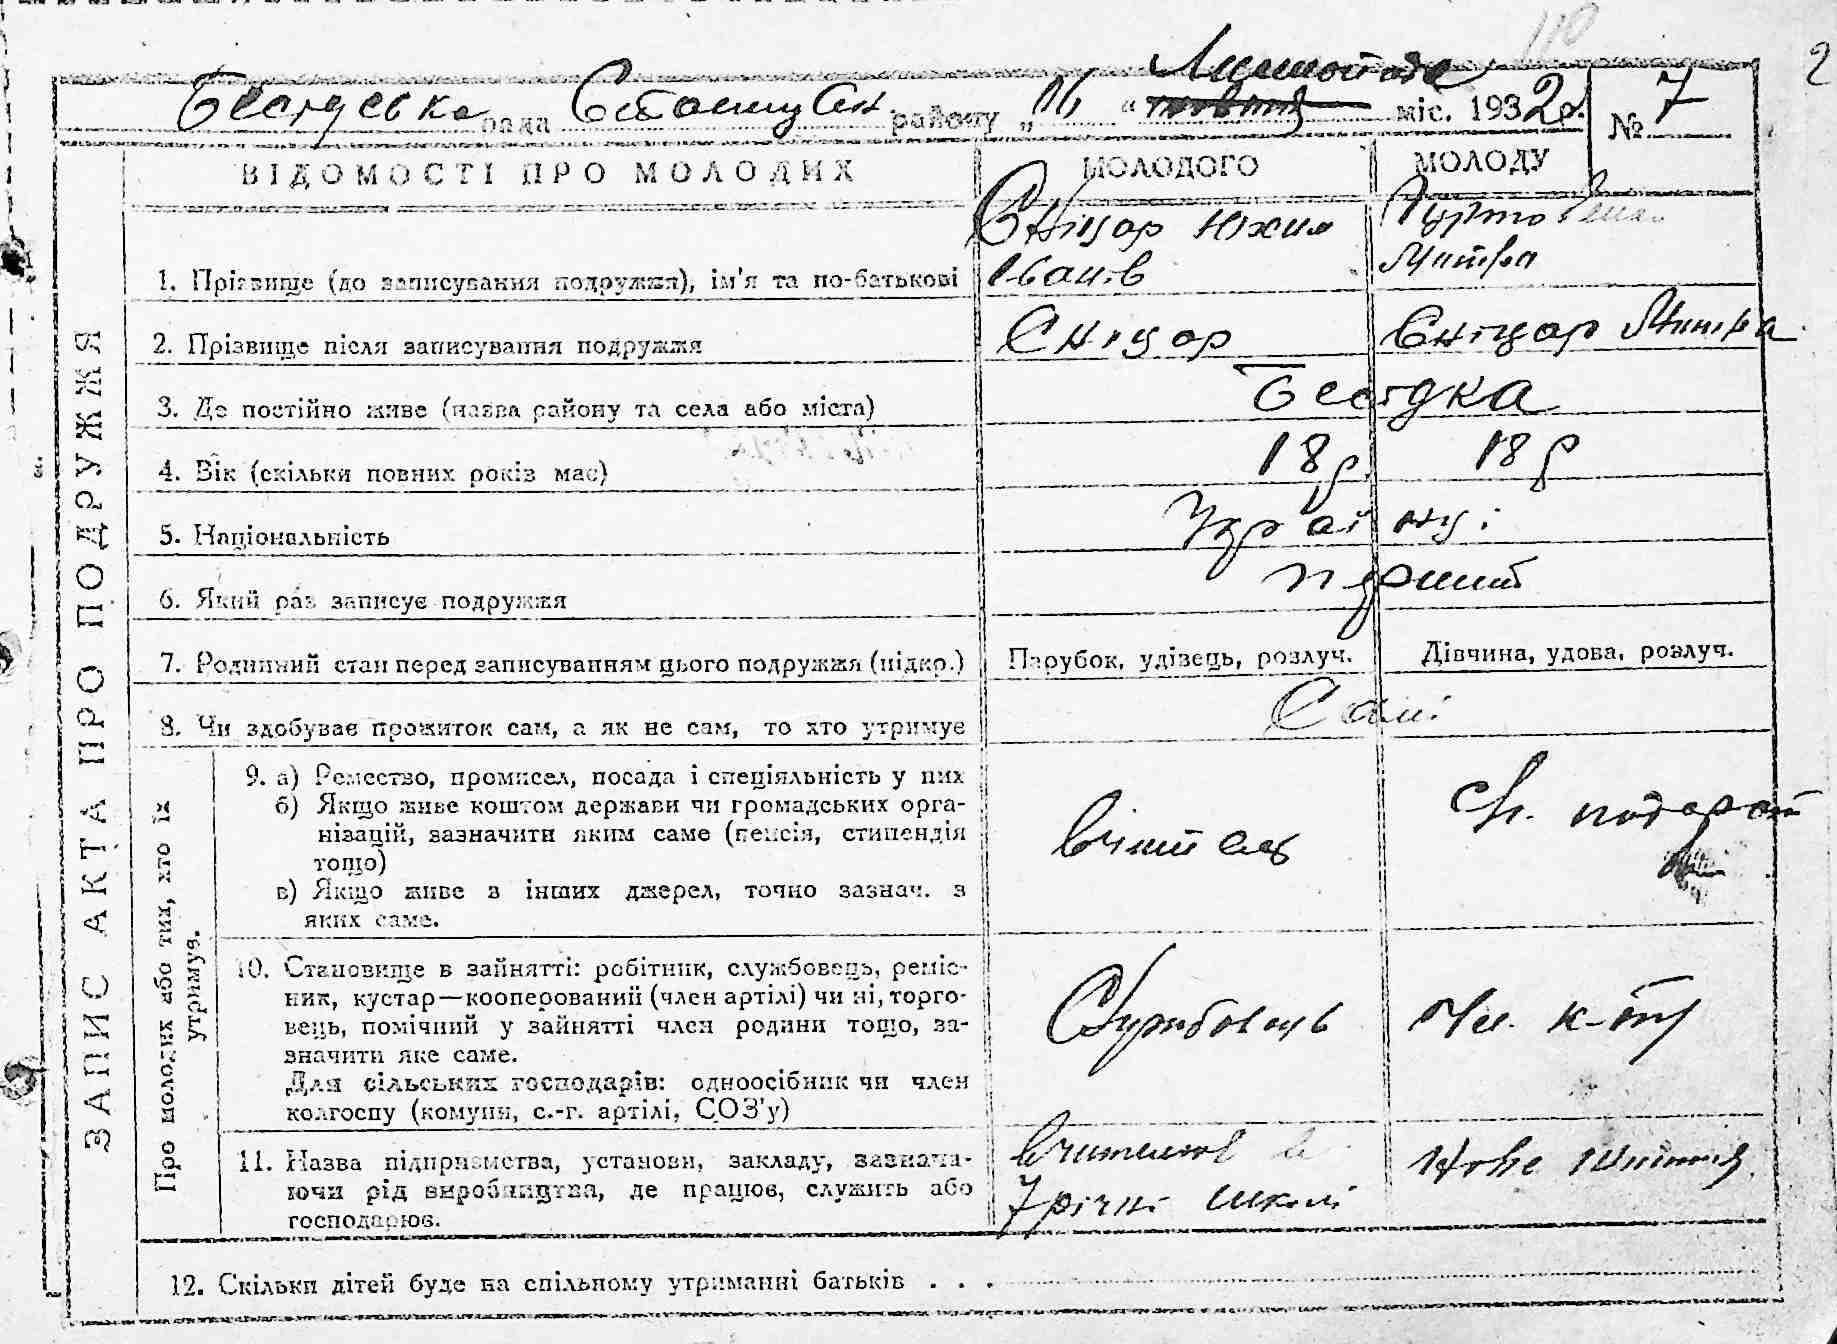 2
Листопада
Бесідська рада Ставищан. району „16“ жовтня міс. 1932 р. № 7
ВІДОМОСТІ ПРО МОЛОДИХ МОЛОДОГО МОЛОДУ
1. Прізвище (до записування подружжя), ім'я та по-батькові Сніцар Юхим Іванів
2. Прізвище після записування подружжя Сніцар Сніцар
3. Де постійно живе (назва району та села або міста) Бесідка
4. Вік (скільки повних років має) 18 р. 18 р
5. Національність Українці
6. Який раз записує подружжя перший
7. Родинний стан перед записуванням цього подружжя (підкр.) Парубок, удівець, розлуч. Дівчина, удова, розлуч.
8. Чи здобуває прожиток сам, а як не сам, то хто утримує Самі
ЗАПИС АКТА ПРО ПОДРУЖЖЯ
Про молодих або тих, хто їх утримує.
9. а) Ремество, промисел, посада і спеціяльність у них
б) Якщо живе коштом держави чи громадських орга-
нізацій, зазначити яким саме (пенсія, стипендія
тощо)
в) Якщо живе з інших джерел, точно зазнач. з
яких саме.
вчитель
10. Становище в зайнятті: робітник, службовець, реміс-
ник, кустар—кооперований (член артілі) чи ні, торго-
вець, помічний у зайнятті член родини тощо, за-
значити яке саме.
Для сільських господарів: одноосібник чи член
колгоспу (комуни, с.-г. артілі, СОЗ'у)
Службовець Чл. к-пу
11. Назва підприємства, установи, закладу, зазнача-
ючи рід виробництва, де працює, служить або
господарює.
Вчителює в
7 річні школі
Нове Життя
12. Скільки дітей буде на спільному утриманні батьків . . .